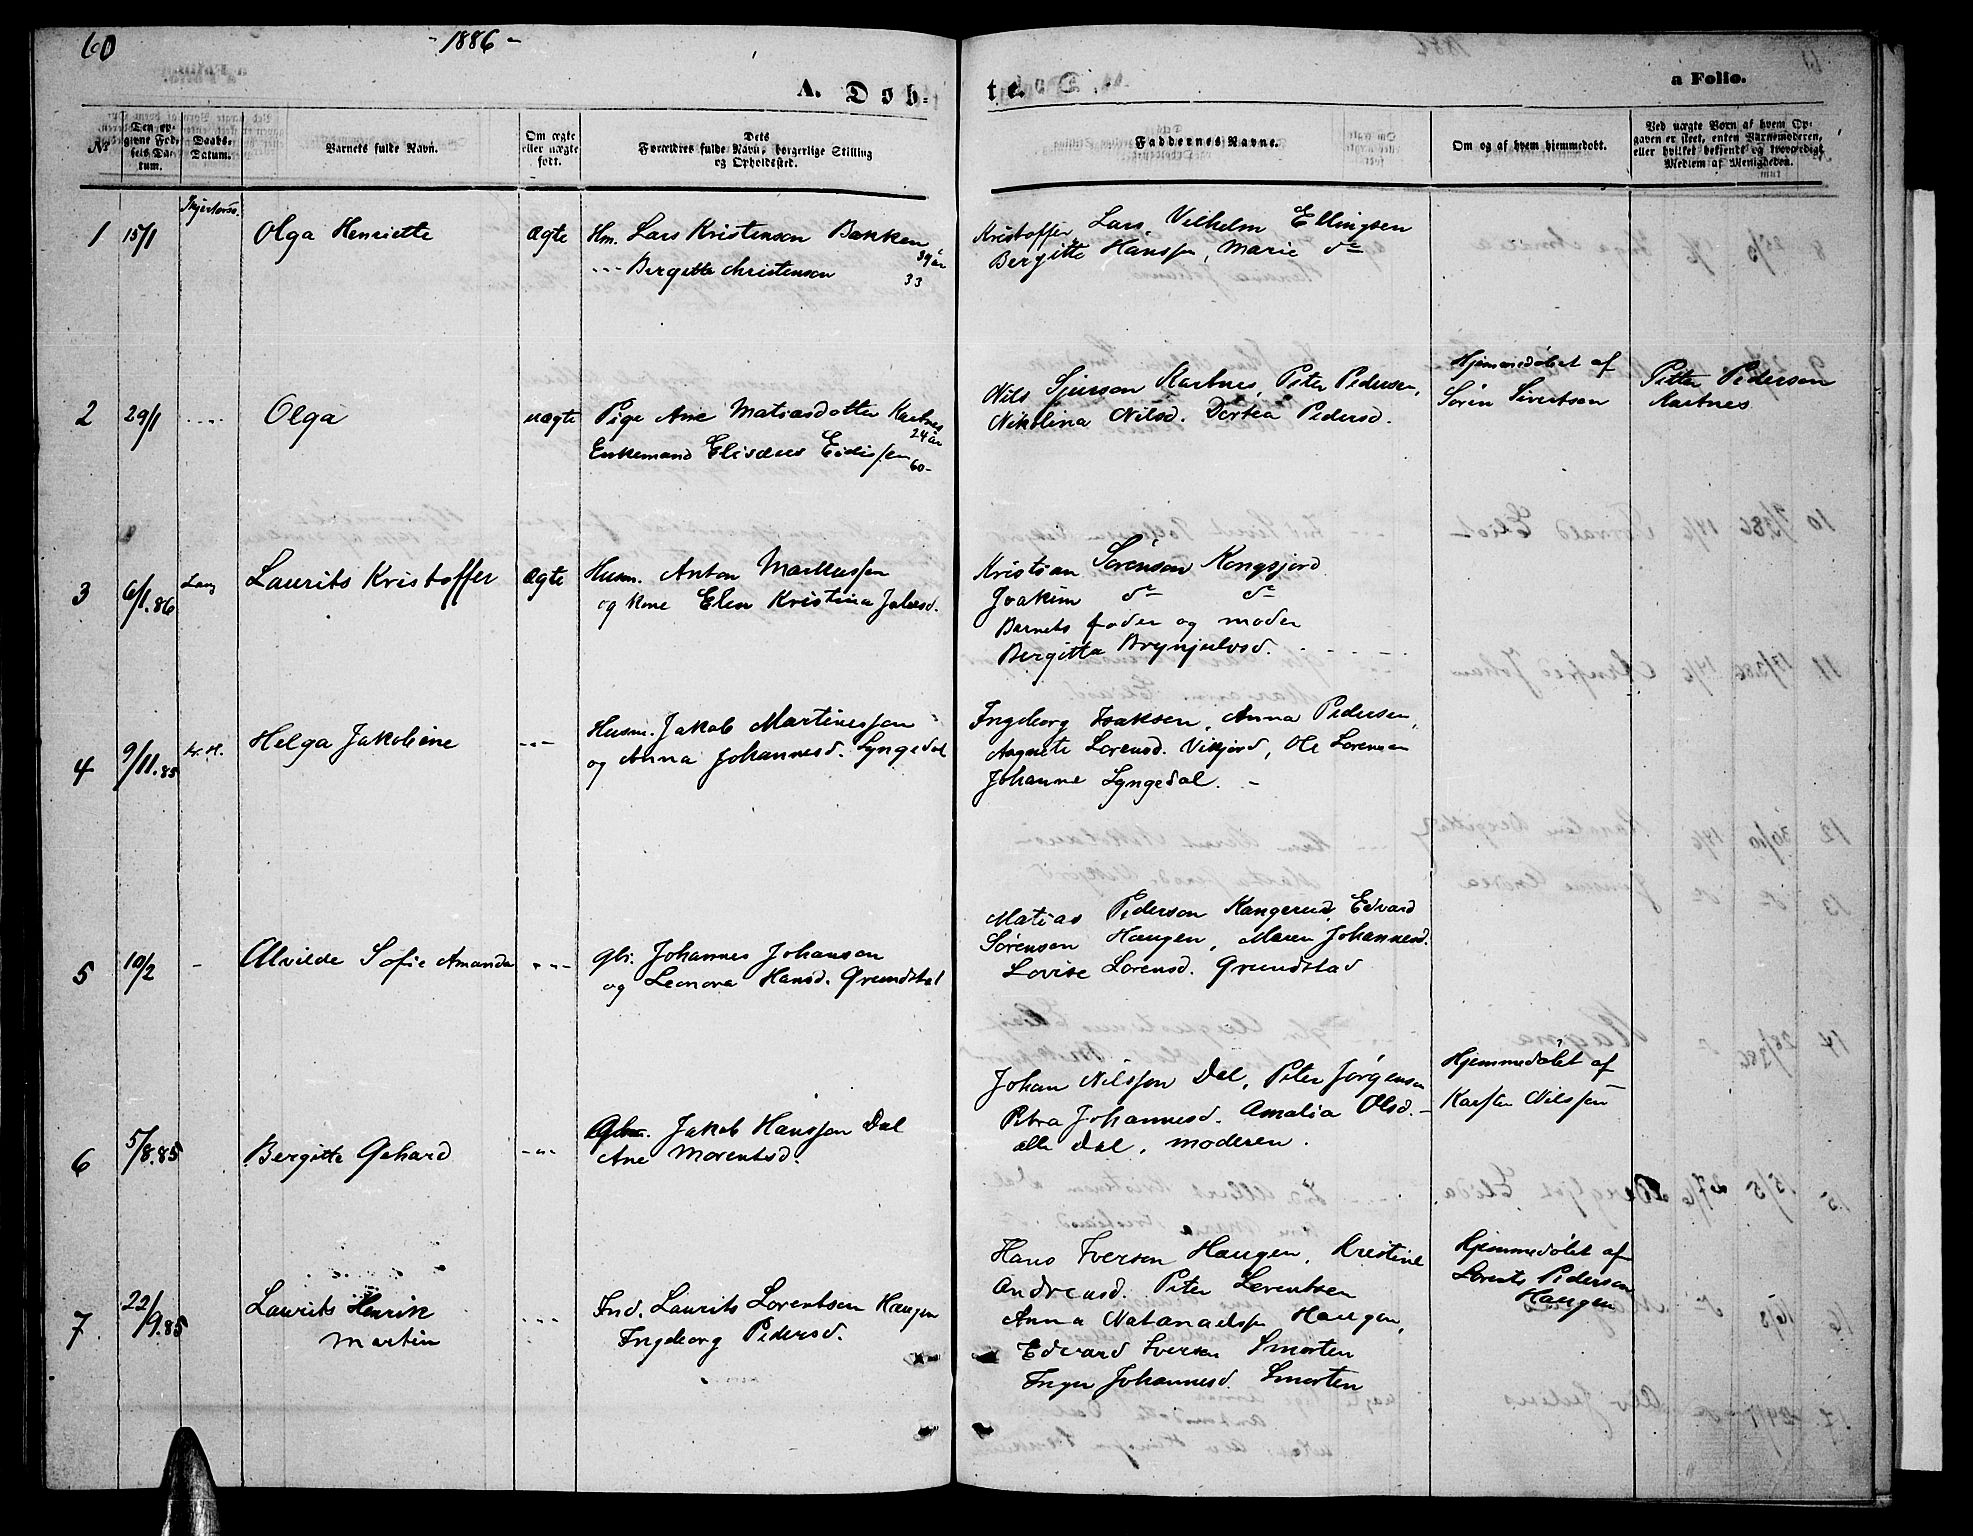 60
- 1886 -
A. Døb-
te.
a Folio.
№
Den op-
givne Fød-
sels Da-
tum.
Daabs-
Datum.
Barnets fulde Navn.
Om ægte
eller uægte
født.
Dets
Forældres fulde Navn, borgerlige Stilling
og Opholdssted.
Faddernes Navne.
Om og af hvem hjemmedøbt.
Ved uægte Børn af hvem Op-
gaven er skeet, enten Barnemoderen,
eller hvilket bekjendt og troværdigt
Medlem af Menigheden.
1 15/1 Olga Henriette ægte Hm. Lars Kristensen Bakken 34 år
Bergette Christensen 33
Kristoffer Lars, Vilhelm Ellingsen
Bergitte Hanssen, Marie do
2 29/1 Olga uægte Pige Ane Matiasdatter Kartnes 24 år
Enkemand Elisæus Eidissen 60-
Nils Sjurson Kartnes, Peter Pedersen,
Nikolina Nilsd. Dortea Pedersd.
Hjemmedøbt af
Søren Sivertsen
Petter Pedersen
Kartnes
3 6/1.86 Lang Laurits Kristoffer ægte Husm. Anton Markussen
og kone Elen Kristina Jakobsd.
Kristian Sørenson Kongsjord
Joakim do do
Barnets fader og moder
Bergitta Brynjulvsd.
4 9/11.85 Helga Jakobine Husm. Jakob Martinussen
og Anna Johannesd. Lyngedal
Ingeborg Isaksen, Anna Pedersen,
Angnete Lorensd. Vikjord, Ole Lorensen
Johanne Lyngedal. -
5 10/2 - Alvilde Sofie Amanda Gbr. Johannes Johanson
og Leonora Hansd. Grundstad
Matias Pederson Kangerud, Edvard
Sørenson Haugen, Maren Johannesd.
Lovise Lorensd. Grundstad
6 5/8.85 Bergitte Gehard Gbr. Jakob Hanssen Dal
Ane Morentsd.
Johan Nilssen Dal, Peter Jørgensen
Petra Johannesd. Amalia Olsd. -
alle Dal, moderen.
Hjemmedøbt af
Karsten Nilssen
7 22/9.85 Laurits Henrik
Martin
Ind. Laurits Lorentsen Haugen
Ingeborg Pedersd.
Hans Iversen Haugen, Kristine
Andreasd. Peter Lorentsen
Anna Natanaelsen Haugen,
Edvard Iversen Smorten
Inger Johannesd. Smorten
Hjemmedøbt af
Lorents Pederson
Haugen